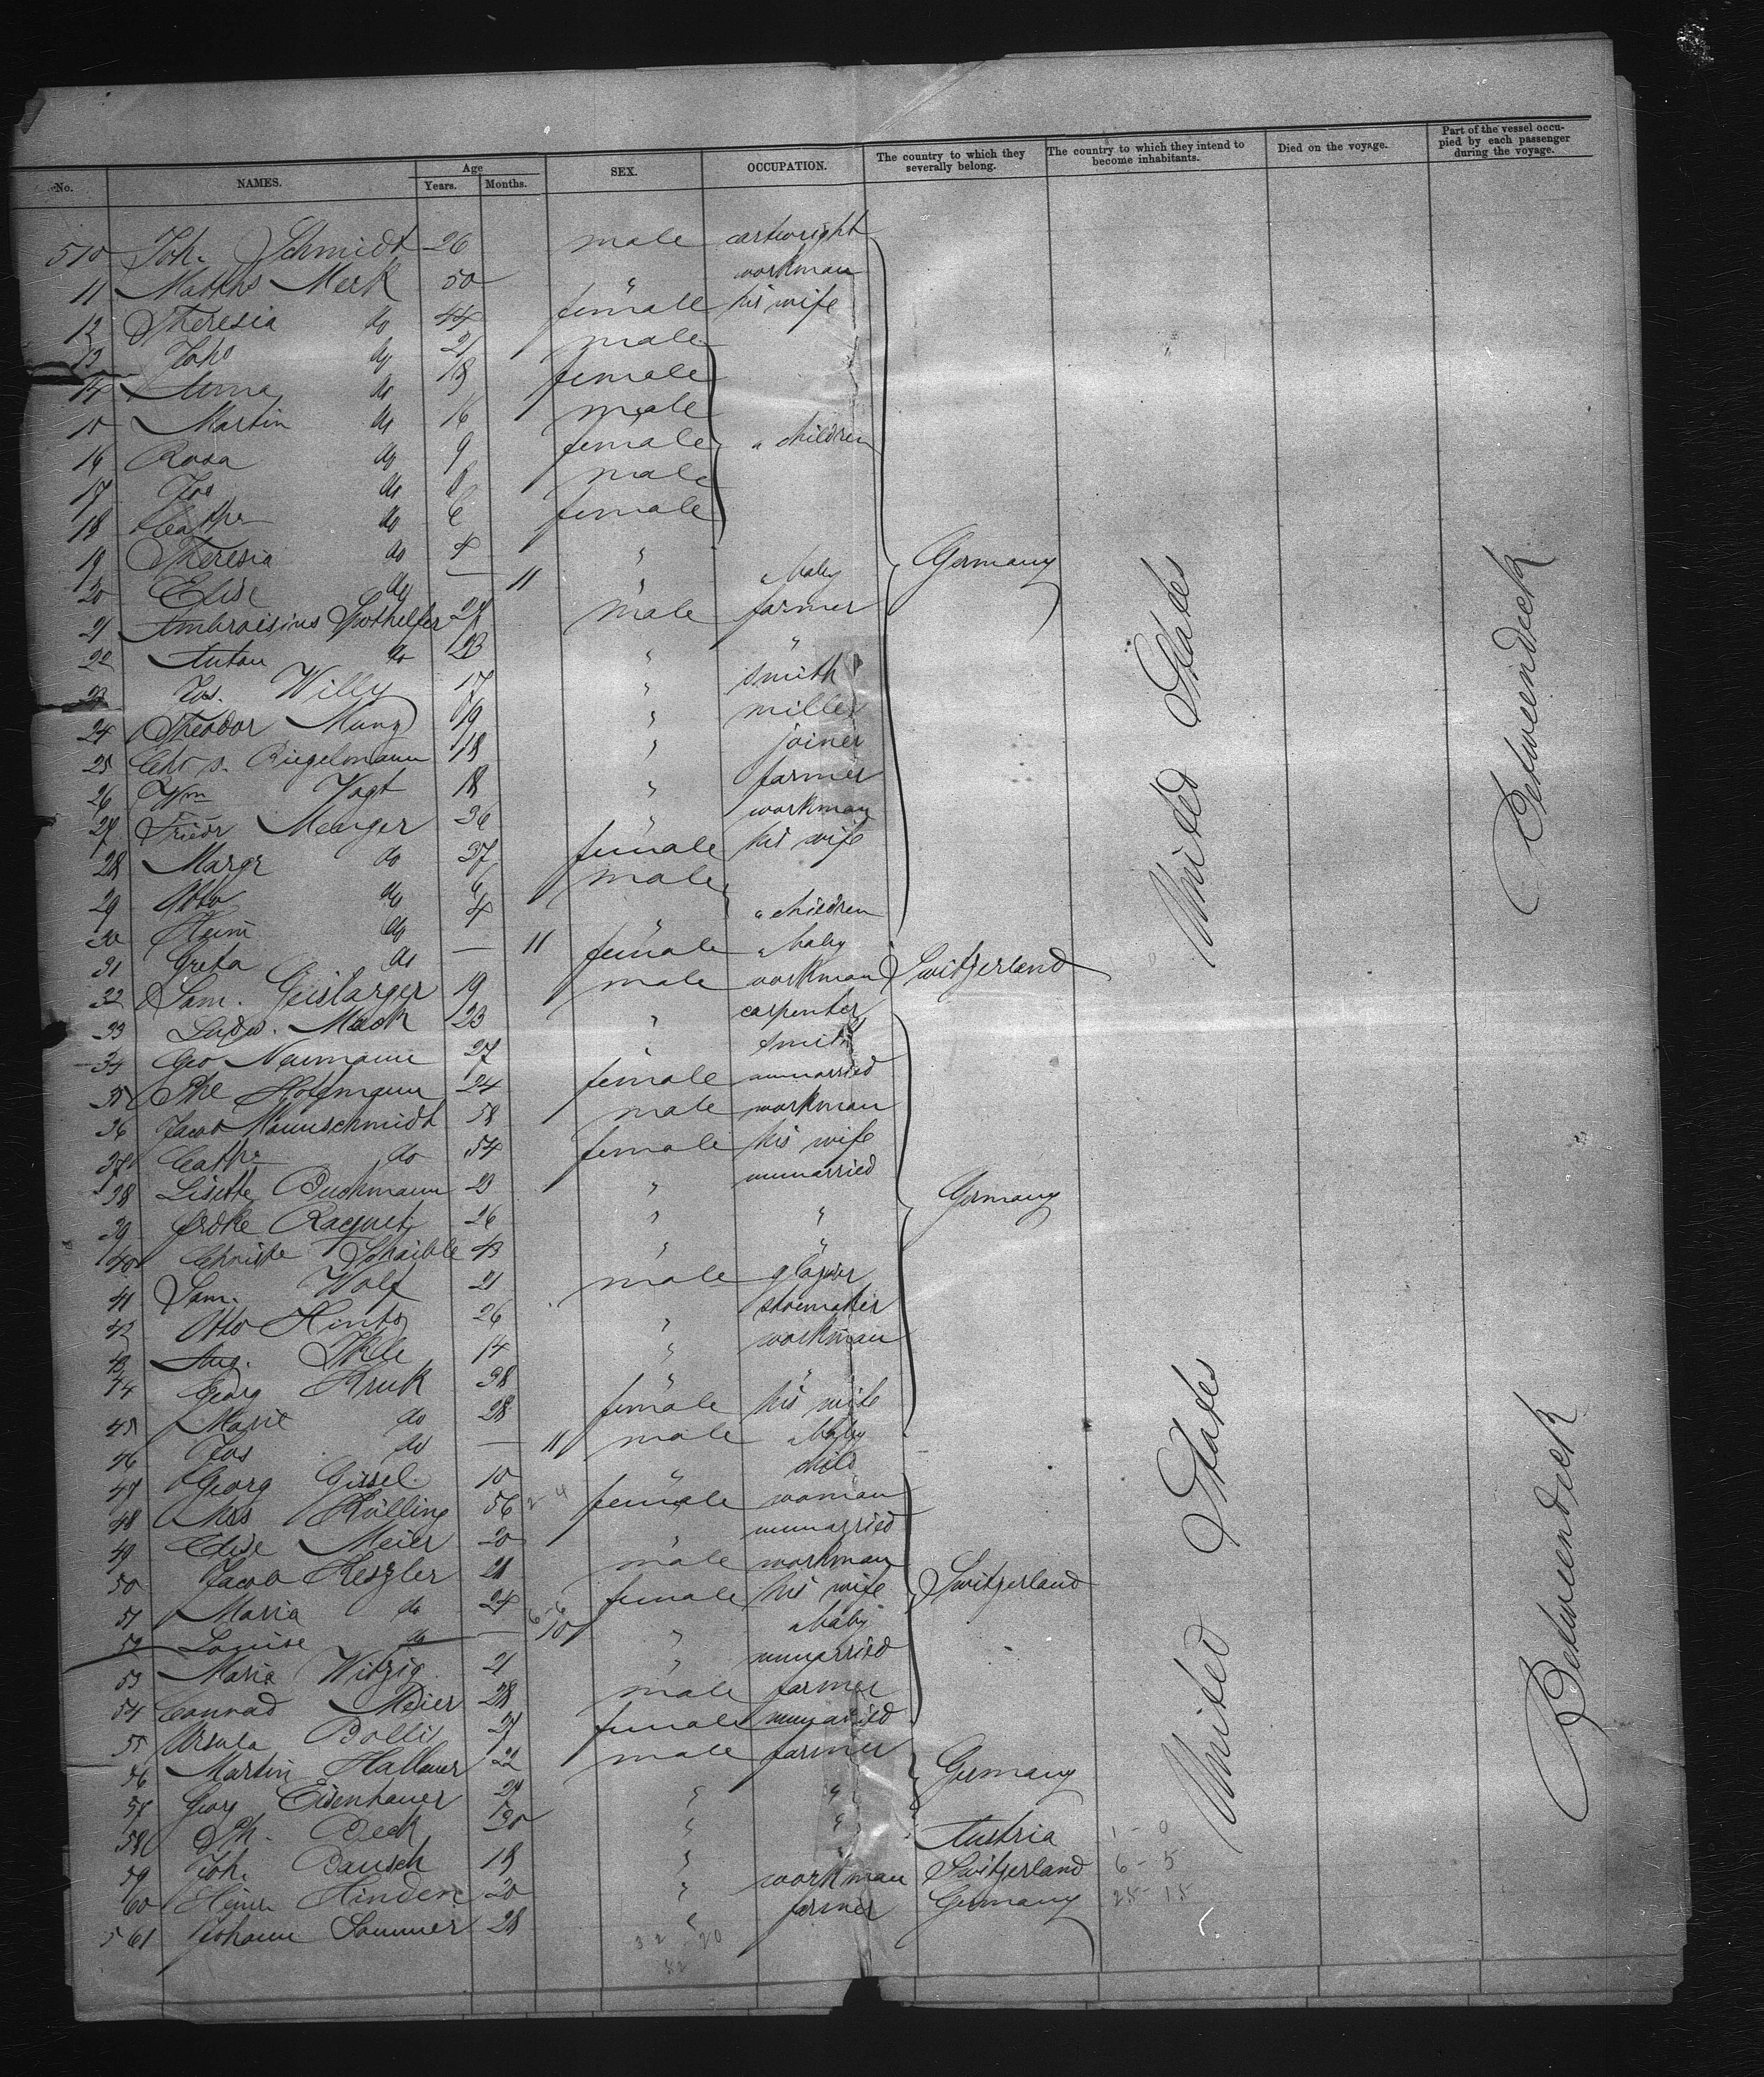 No. NAMES. Age Years. Months. SEX. OCCUPATION. The country to which they severally belong. The country to which they intend to become inhabitants. Died on the voyage. Part of the vessel occupied by each passenger during the voyage.
510 Joh. Schmidt 26 male cartwright
11 Maths Merk 50 " workman
12 Theresia do 44 female his wife
13 Johs do 21 male
14 Anna do 18 female
15 Martin do 16 male
16 Rosa do 9 female " children
17 Jos do 8 male
18 Cathe do 6 female
19 Theresia do 4 "
20 Elise do — 11 " " baby Germany
21 Ambrosius 28 male farmer
22 Anton do 23 " "
23 Jos. Willy 17 " smith
24 Theodor Munz 19 " miller
25 Chrs. Riegelmann 18 " joiner
26 Wm Vogt 18 " farmer
27 Friedr Menger 36 " workman
28 Margr do 37 female his wife
29 Otto do 6 male
30 Heinr do 4 " " children
31 Greta do — 11 female " baby
32 Sam. 19 male workman Switzerland
33 Ludw. Mack 23 " carpenter
34 Geo Neumann 27 " smith
35 24 female unmarried
36 Jacob 58 male workman
37 Cathe do 54 female his wife
38 Lisette Buchmann 23 " unmarried
39 Raquet 26 " " Germany
40 Christe Schaible 43 " "
41 Sam. Wolf 21 male glazier
42 Otto Hints 26 " shoemaker
43 Aug. 14 " workman
44 Georg Kruk 38 " "
45 Marie do 28 female his wife
46 Jos do — 11 male " baby
47 Georg Gissel 10 " child
48 Mrs Rülling 56 female woman
49 Elise Meier 20 " unmarried
50 Jacob Keszler 21 male workman
51 Maria do 24 female his wife Switzerland
52 Louise do — 10 " " baby
53 Maria Witzig 21 " unmarried
54 Conrad Meier 28 male farmer
55 Ursula Bolli 27 female unmarried
56 Martin Hallauer 22 male farmer
57 Georg Eisenhauer 29 " " Germany
58 Ph. Beck 30 " "
59 Joh. Bausch 18 " " Austria 1-0
60 Heinr Hinden 20 " workman Switzerland 6-5
561 Johann Sommer 28 " farmer Germany 25-15
32 20
52
United States
Betweendeck
United States
Betweendeck